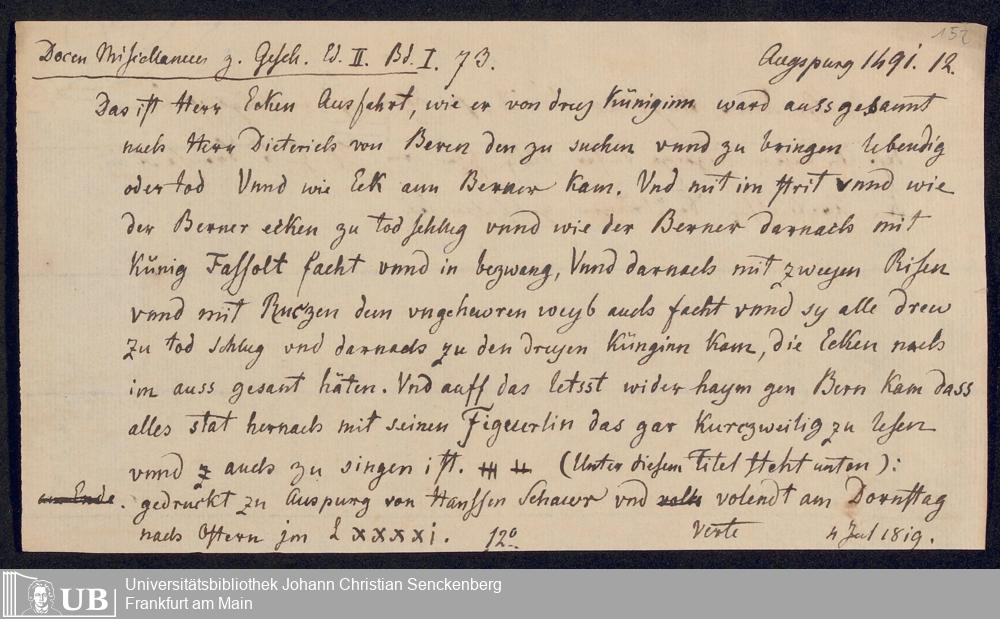 152
Docen Misicellaneen z. Gesch. Ed. II. Bd. I. 73. Augspurg 1491. 12.
Das ist Herr Ecken Ausfahrt, wie er von dreyen Küniginn ward aussgesannt
nach Herr Dieterich von Beren den zu suchen vnnd zu bringen lebendig
oder tod Vnnd wie Eck ann Berner kam. Vnd mit im strit vnnd wie
der Berner ecken zu tod schlug vnnd wie der Berner darnach mit
Künig Fassolt facht vnnd in bezwang, Vnnd darnach mit zweyen Risen
vnnd mit Ruczen dem vngehewren weyb auch facht vnnd sy alle drew
zu tod schlug vnd darnach zu den dreyen Künginn kam, die Ecken nach
im auss gesant häten. Vnd auff das letsst wider haym gen Bern kam dass
alles stat hernach mit seinen Figeuerlin das gar kurczweilig zu lesen
vnnd auch zu singen ist. (Unter diesem Titel steht unten):
am Ende. gedruckt zu Auspurg von Hanssen Schawr vnd volendt am Dornstag
nach Ostern jm Lxxxxi. 12° Verte 4 Jul 1819.
UB
Universitätsbibliothek Johann Christian Senckenberg
Frankfurt am Main